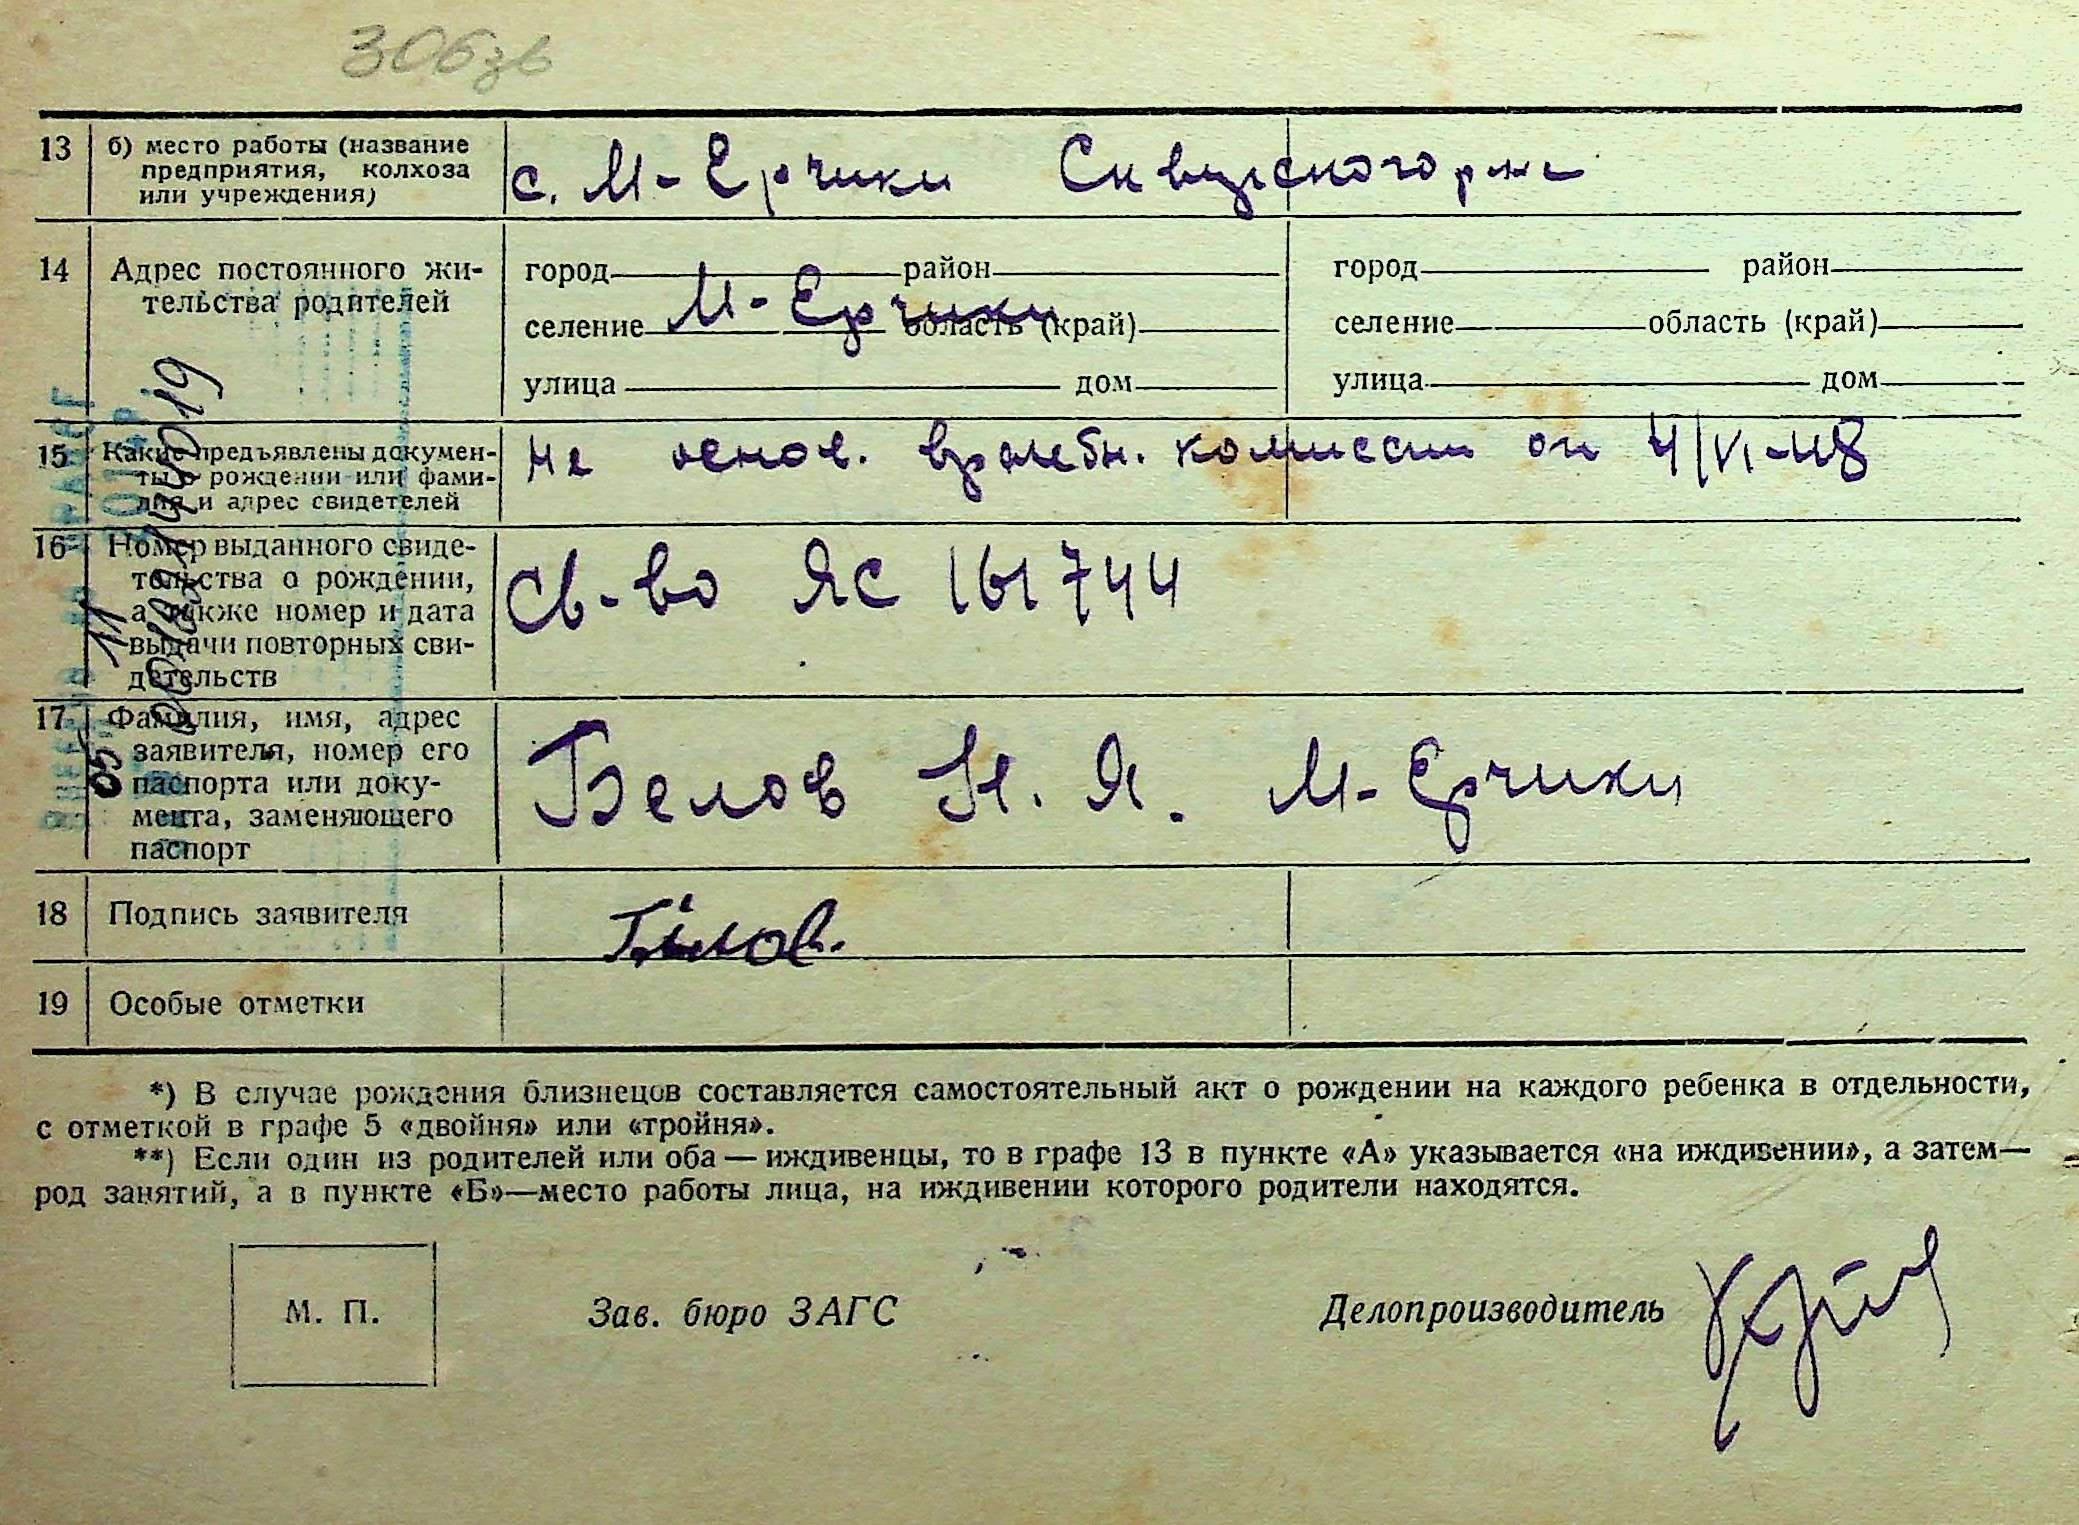 13 б) место работы (название
предприятия, колхоза
или учреждения)
с. М-Ерчики Сквирского р-на
14 Адрес постоянного жи-
тельства родителей
город район
селение М-Ерчики область (край)
улица дом
город район
селение область (край)
улица дом
15 Какие предъявлены докумен-
ты о рождении или фами-
лия и адрес свидетелей
на основ. врачебн. комиссии от 4/VI-48
16 Номер выданного свиде-
тельства о рождении,
а также номер и дата
выдачи повторных сви-
детельств
Св-во ЯС 161744
17 Фамилия, имя, адрес
заявителя, номер его
паспорта или доку-
мента, заменяющего
паспорт
Белов Н. Я. М-Ерчики
18 Подпись заявителя
Білов.
19 Особые отметки
*) В случае рождения близнецов составляется самостоятельный акт о рождении на каждого ребенка в отдельности,
с отметкой в графе 5 «двойня» или «тройня».
**) Если один из родителей или оба — иждивенцы, то в графе 13 в пункте «А» указывается «на иждивении», а затем—
род занятий, а в пункте «Б»—место работы лица, на иждивении которого родители находятся.
М. П.
Зав. бюро ЗАГС
Делопроизводитель